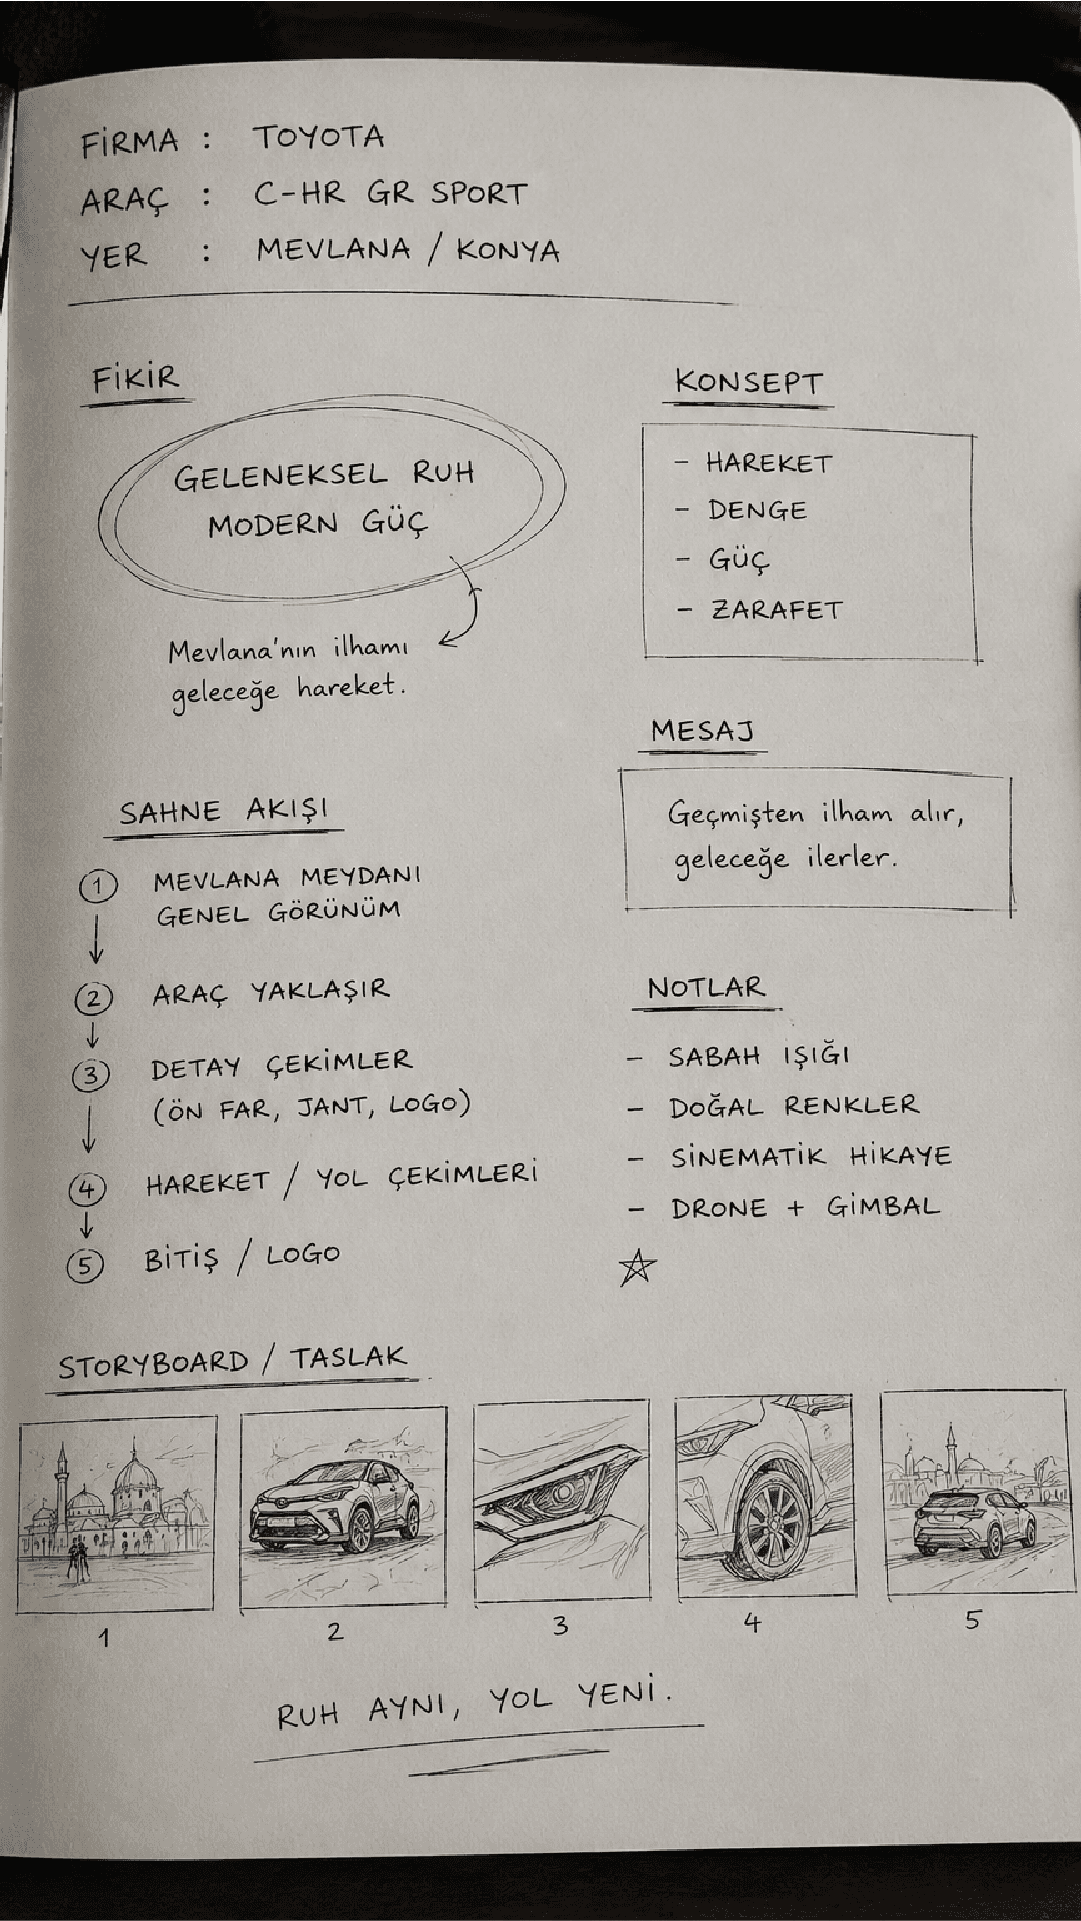 FİRMA : TOYOTA
ARAÇ : C-HR GR SPORT
YER : MEVLANA / KONYA
FİKİR
GELENEKSEL RUH
MODERN GÜÇ
Mevlana'nın ilhamı
geleceğe hareket.
KONSEPT
- HAREKET
- DENGE
- GÜÇ
- ZARAFET
MESAJ
Geçmişten ilham alır,
geleceğe ilerler.
SAHNE AKIŞI
1 MEVLANA MEYDANI
GENEL GÖRÜNÜM
2 ARAÇ YAKLAŞIR
3 DETAY ÇEKİMLER
(ÖN FAR, JANT, LOGO)
4 HAREKET / YOL ÇEKİMLERİ
5 BİTİŞ / LOGO
NOTLAR
- SABAH IŞIĞI
- DOĞAL RENKLER
- SİNEMATİK HİKAYE
- DRONE + GİMBAL
STORYBOARD / TASLAK
1 2 3 4 5
RUH AYNI, YOL YENİ.